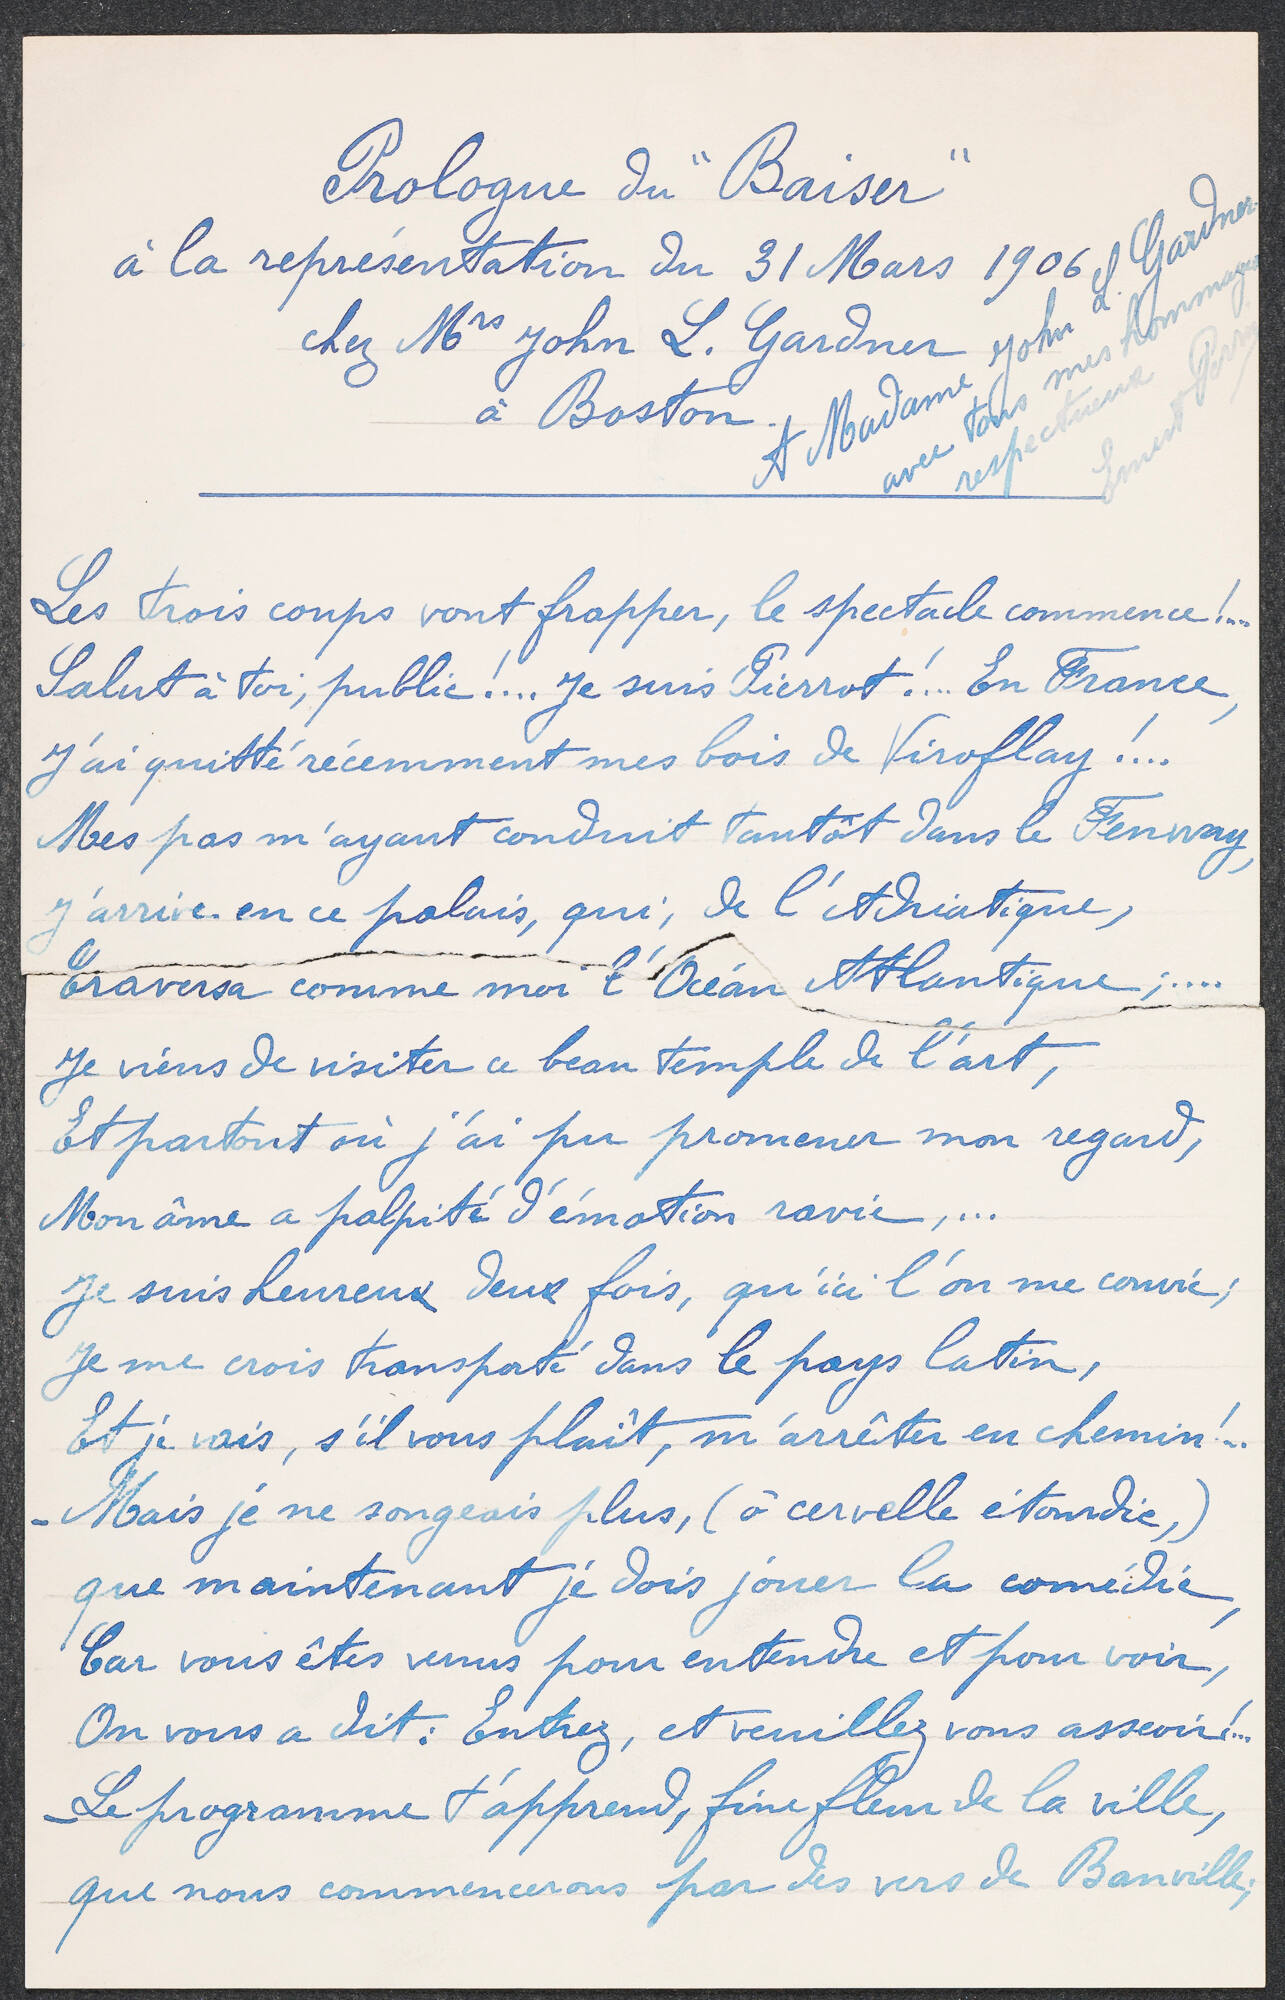 Prologue du "Baiser"
à la représentation du 31 Mars 1906
chez Mrs John L. Gardner
à Boston.
A Madame John L. Gardner
avec tous mes hommages
respectueux
Ernest
Les trois coups vont frapper, le spectacle commence!...
Salut à toi, public!.... Je suis Pierrot!.... En France,
J'ai quitté récemment mes bois de Viroflay!....
Mes pas m'ayant conduit tantôt dans le Fenway,
J'arrive en ce palais, qui, de l'Adriatique,
Traversa comme moi l'Océan Atlantique;.....
Je viens de visiter ce beau temple de l'art,
Et partout où j'ai pu promener mon regard,
Mon âme a palpité d'émotion ravie,...
Je suis heureux deux fois, qu'ici l'on me convie;
Je me crois transporté dans le pays latin,
Et je vais, s'il vous plaît, m'arrêter en chemin!..
- Mais je ne songeais plus, (ô cervelle étourdie,)
que maintenant je dois jouer la comédie,
Car vous êtes venus pour entendre et pour voir,
On vous a dit: Entrez, et veuillez vous asseoir!...
- Le programme t'apprend, fine fleur de la ville,
que nous commencerons par des vers de Banville;